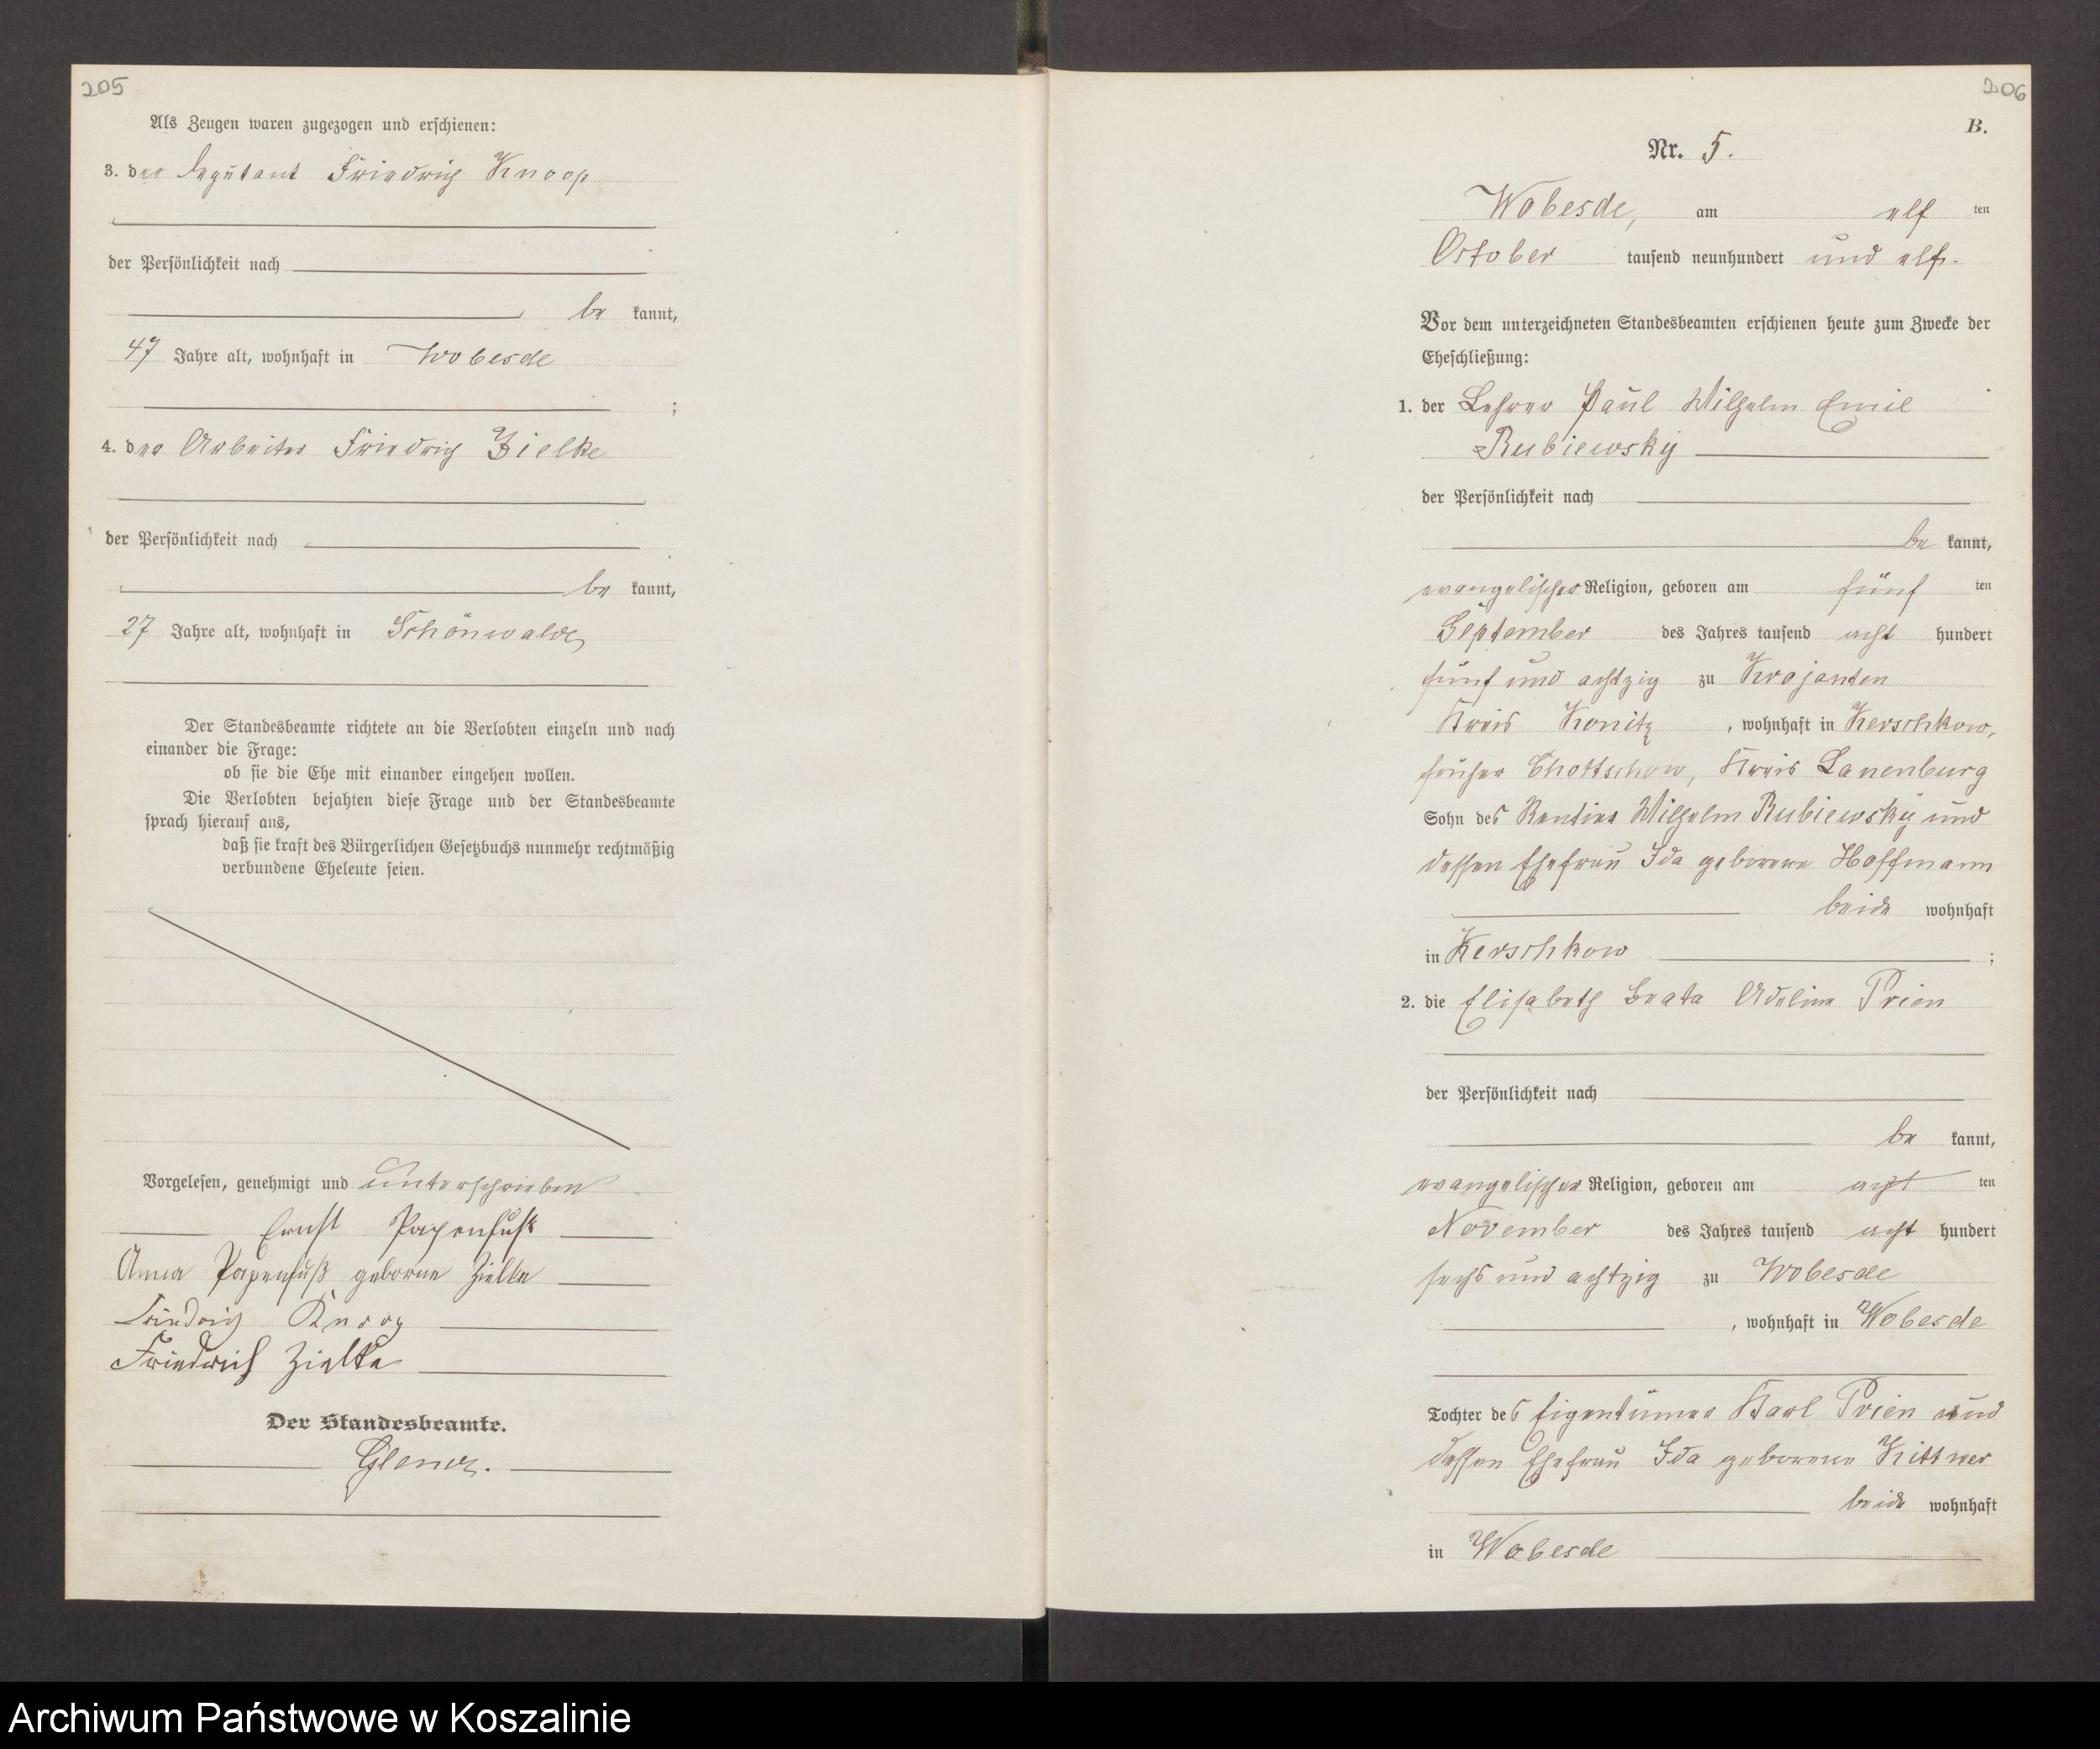 205
Als Zeugen waren zugezogen und erschienen:
3. der Friedrich Knoop
der Persönlichkeit nach
be kannt,
47 Jahre alt, wohnhaft in Wobesde
;
4. der Arbeiter Friedrich Zielke
der Persönlichkeit nach
be kannt,
27 Jahre alt, wohnhaft in Schönwalde
Der Standesbeamte richtete an die Verlobten einzeln und nach
einander die Frage:
ob sie die Ehe mit einander eingehen wollen.
Die Verlobten bejahten diese Frage und der Standesbeamte
sprach hierauf aus,
daß sie kraft des Bürgerlichen Gesetzbuchs nunmehr rechtmäßig
verbundene Eheleute seien.
Vorgelesen, genehmigt und unterschrieben
Ernst Papenfuß
Anna Papenfuß geborne Zielke
Friedrich Knoop
Friedrich Zielke
Der Standesbeamte.
206
B.
Nr. 5.
Wobesde, am elf ten
October tausend neunhundert und elf.
Vor dem unterzeichneten Standesbeamten erschienen heute zum Zwecke der
Eheschließung:
1. der Lehrer Paul Wilhelm Emil
Rubiewsky
der Persönlichkeit nach
be kannt,
evangelischer Religion, geboren am fünf ten
September des Jahres tausend acht hundert
fünf und achtzig zu Krojanten
Kreis Konitz, wohnhaft in Kerschkow,
früher Chottschow, Kreis Lauenburg
Sohn des Rentier Wilhelm Rubiewsky und
dessen Ehefrau Ida geborene Hoffmann
beide wohnhaft
in Kerschkow ;
2. die Elisabeth Beata Adeline Prien
der Persönlichkeit nach
be kannt,
evangelischer Religion, geboren am acht ten
November des Jahres tausend acht hundert
sechs und achtzig zu Wobesde
, wohnhaft in Wobesde
Tochter des Eigentümer Karl Prien und
dessen Ehefrau Ida geborene Kittner
beide wohnhaft
in Wobesde
Archiwum Państwowe w Koszalinie